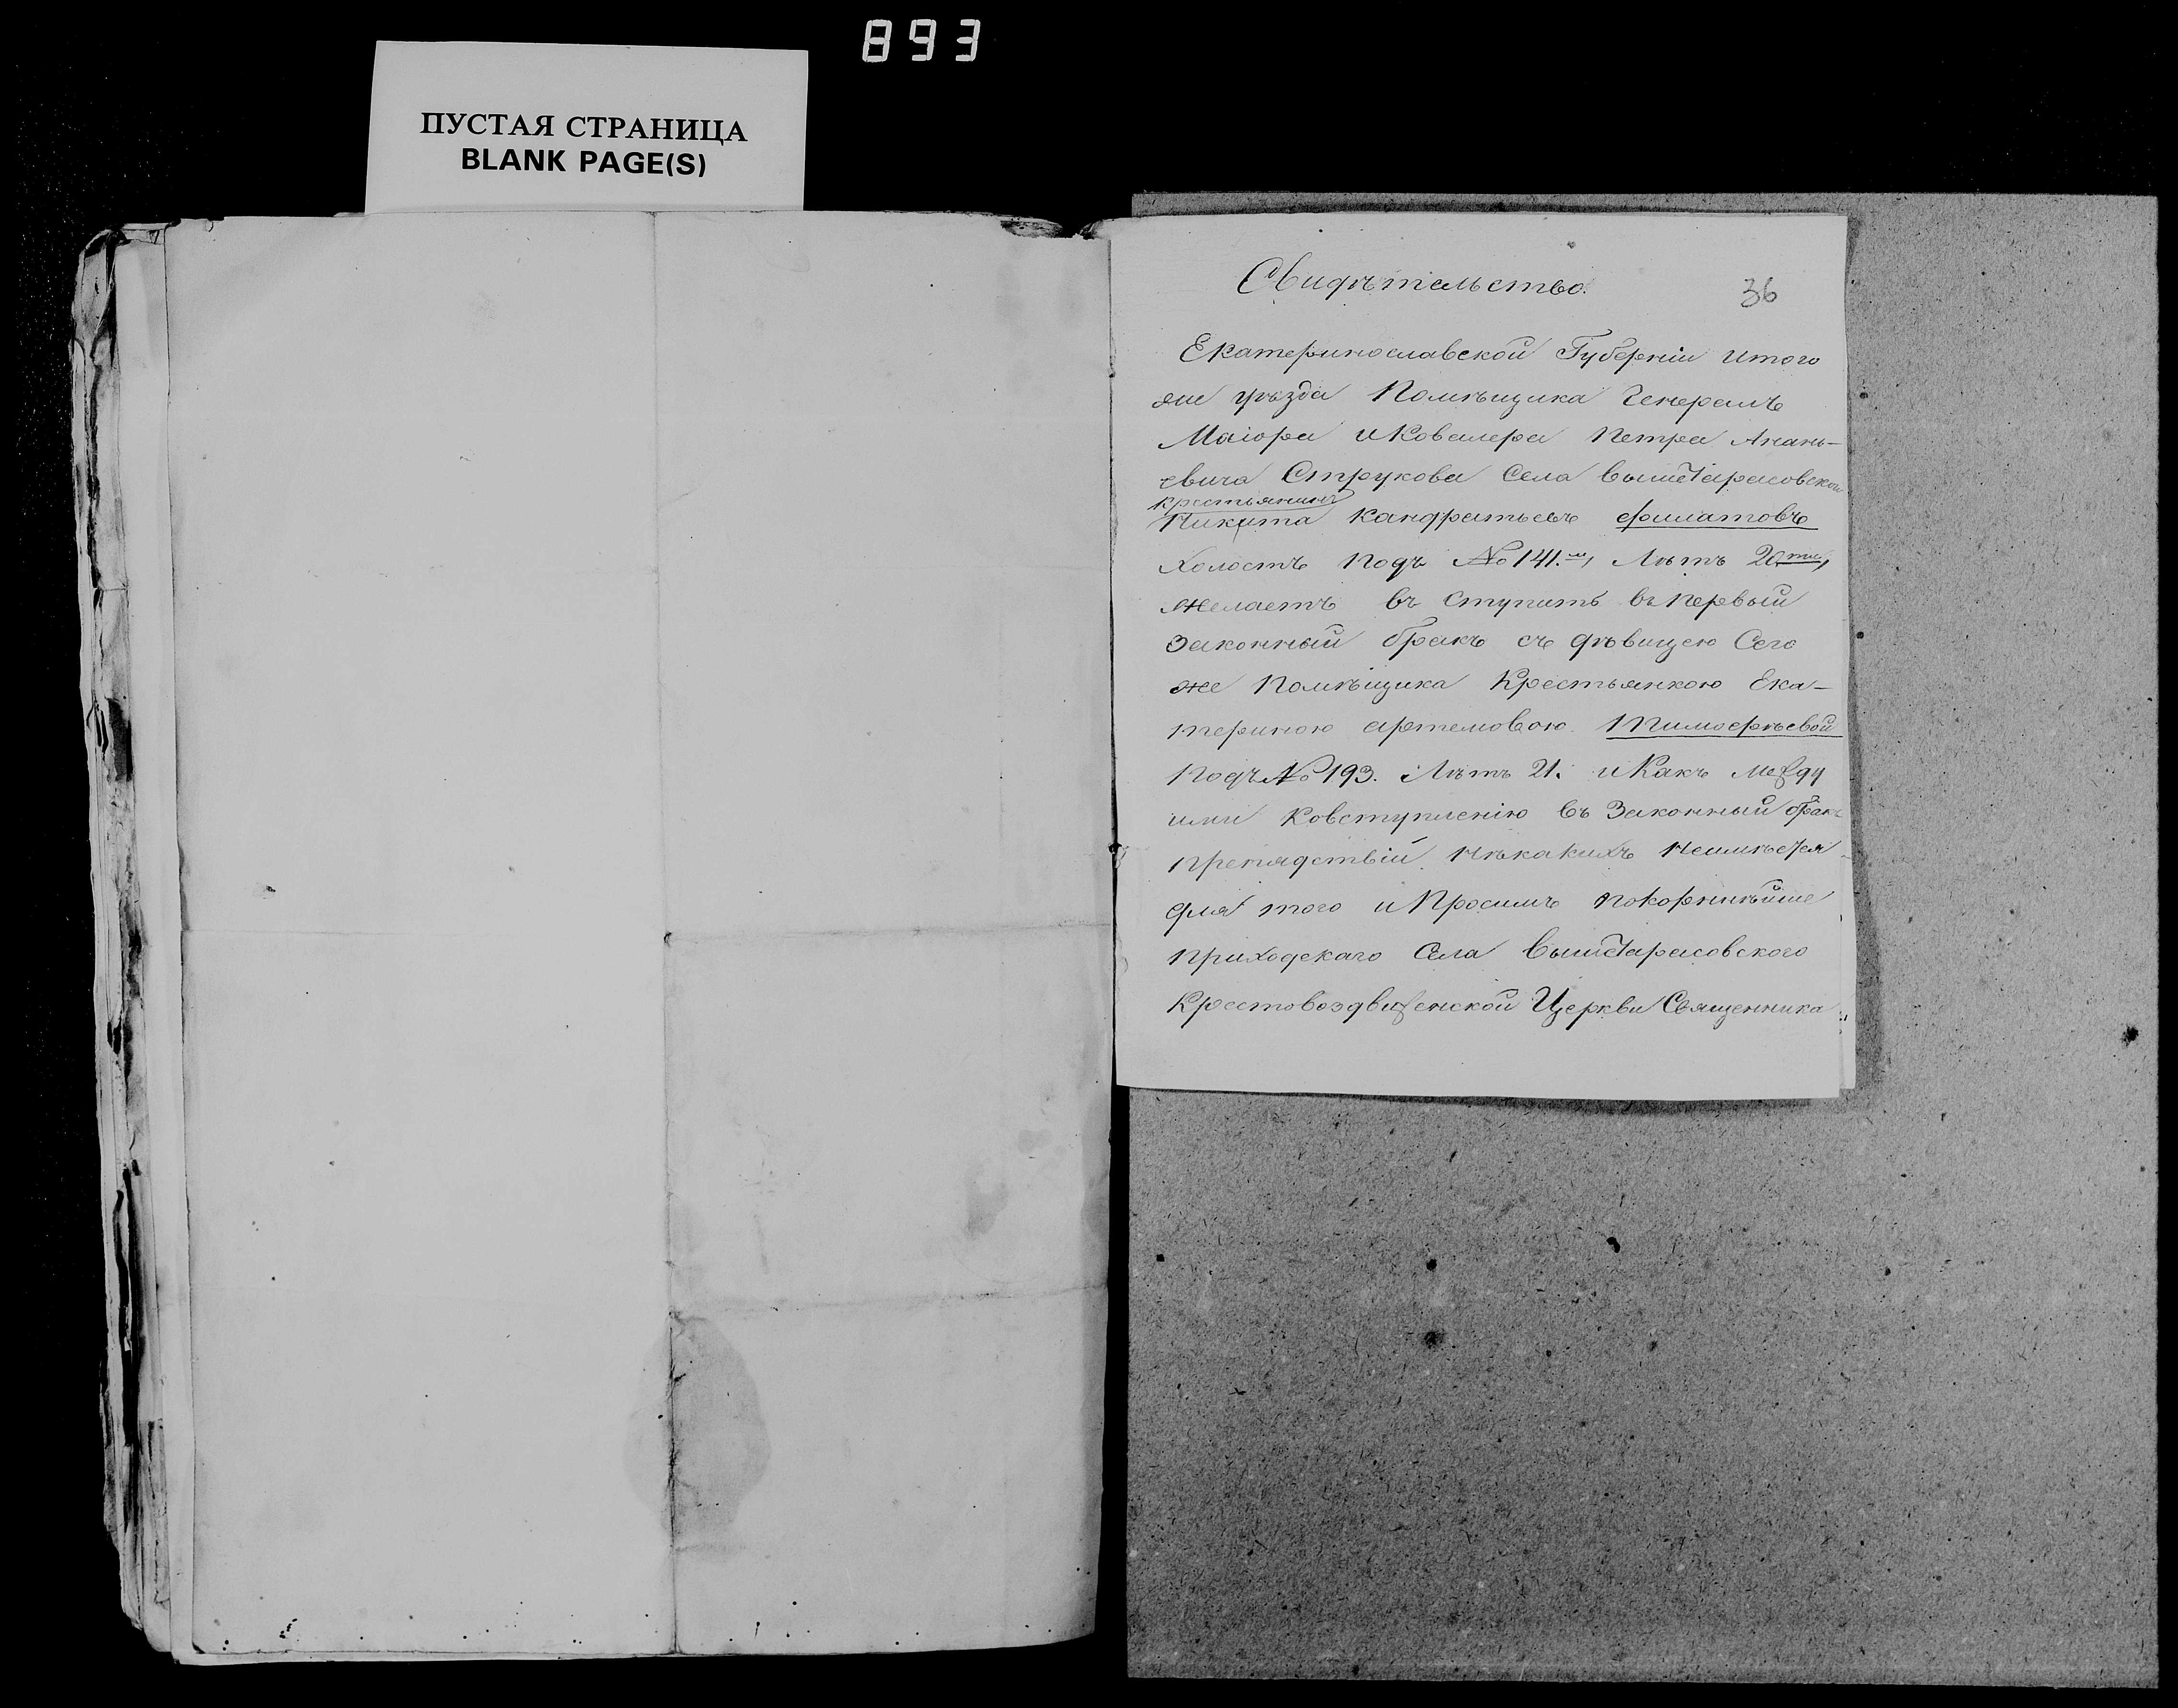 893
ПУСТАЯ СТРАНИЦА
BLANK PAGE(S)
Свидѣтельство.
36
Екатеринославской Губерніи итого
же уѣзда Помѣщика Генералъ
Маіора и Ковалера Петра Анань-
евича Струкова Села вышетарасовской
крестьянинъ
Никита Кандратьевъ филатовъ
Холостъ подъ №141.м, Лѣтъ 20ти,
желаетъ въ ступить въ первый
Законный бракъ съ дѣвицею Сего
же Помѣщика Крестьянкою Ека-
териною артемовою Тимофѣевой
подъ №193. Лѣтъ 21. и Какъ между
ими Ковступленію въ Законный бракъ
препядствій нѣкакихъ неимѣется
для того и Просимъ покорнѣйше
приходскаго Села вышетарасовского
Крестовоздвиженской Церкви Священника